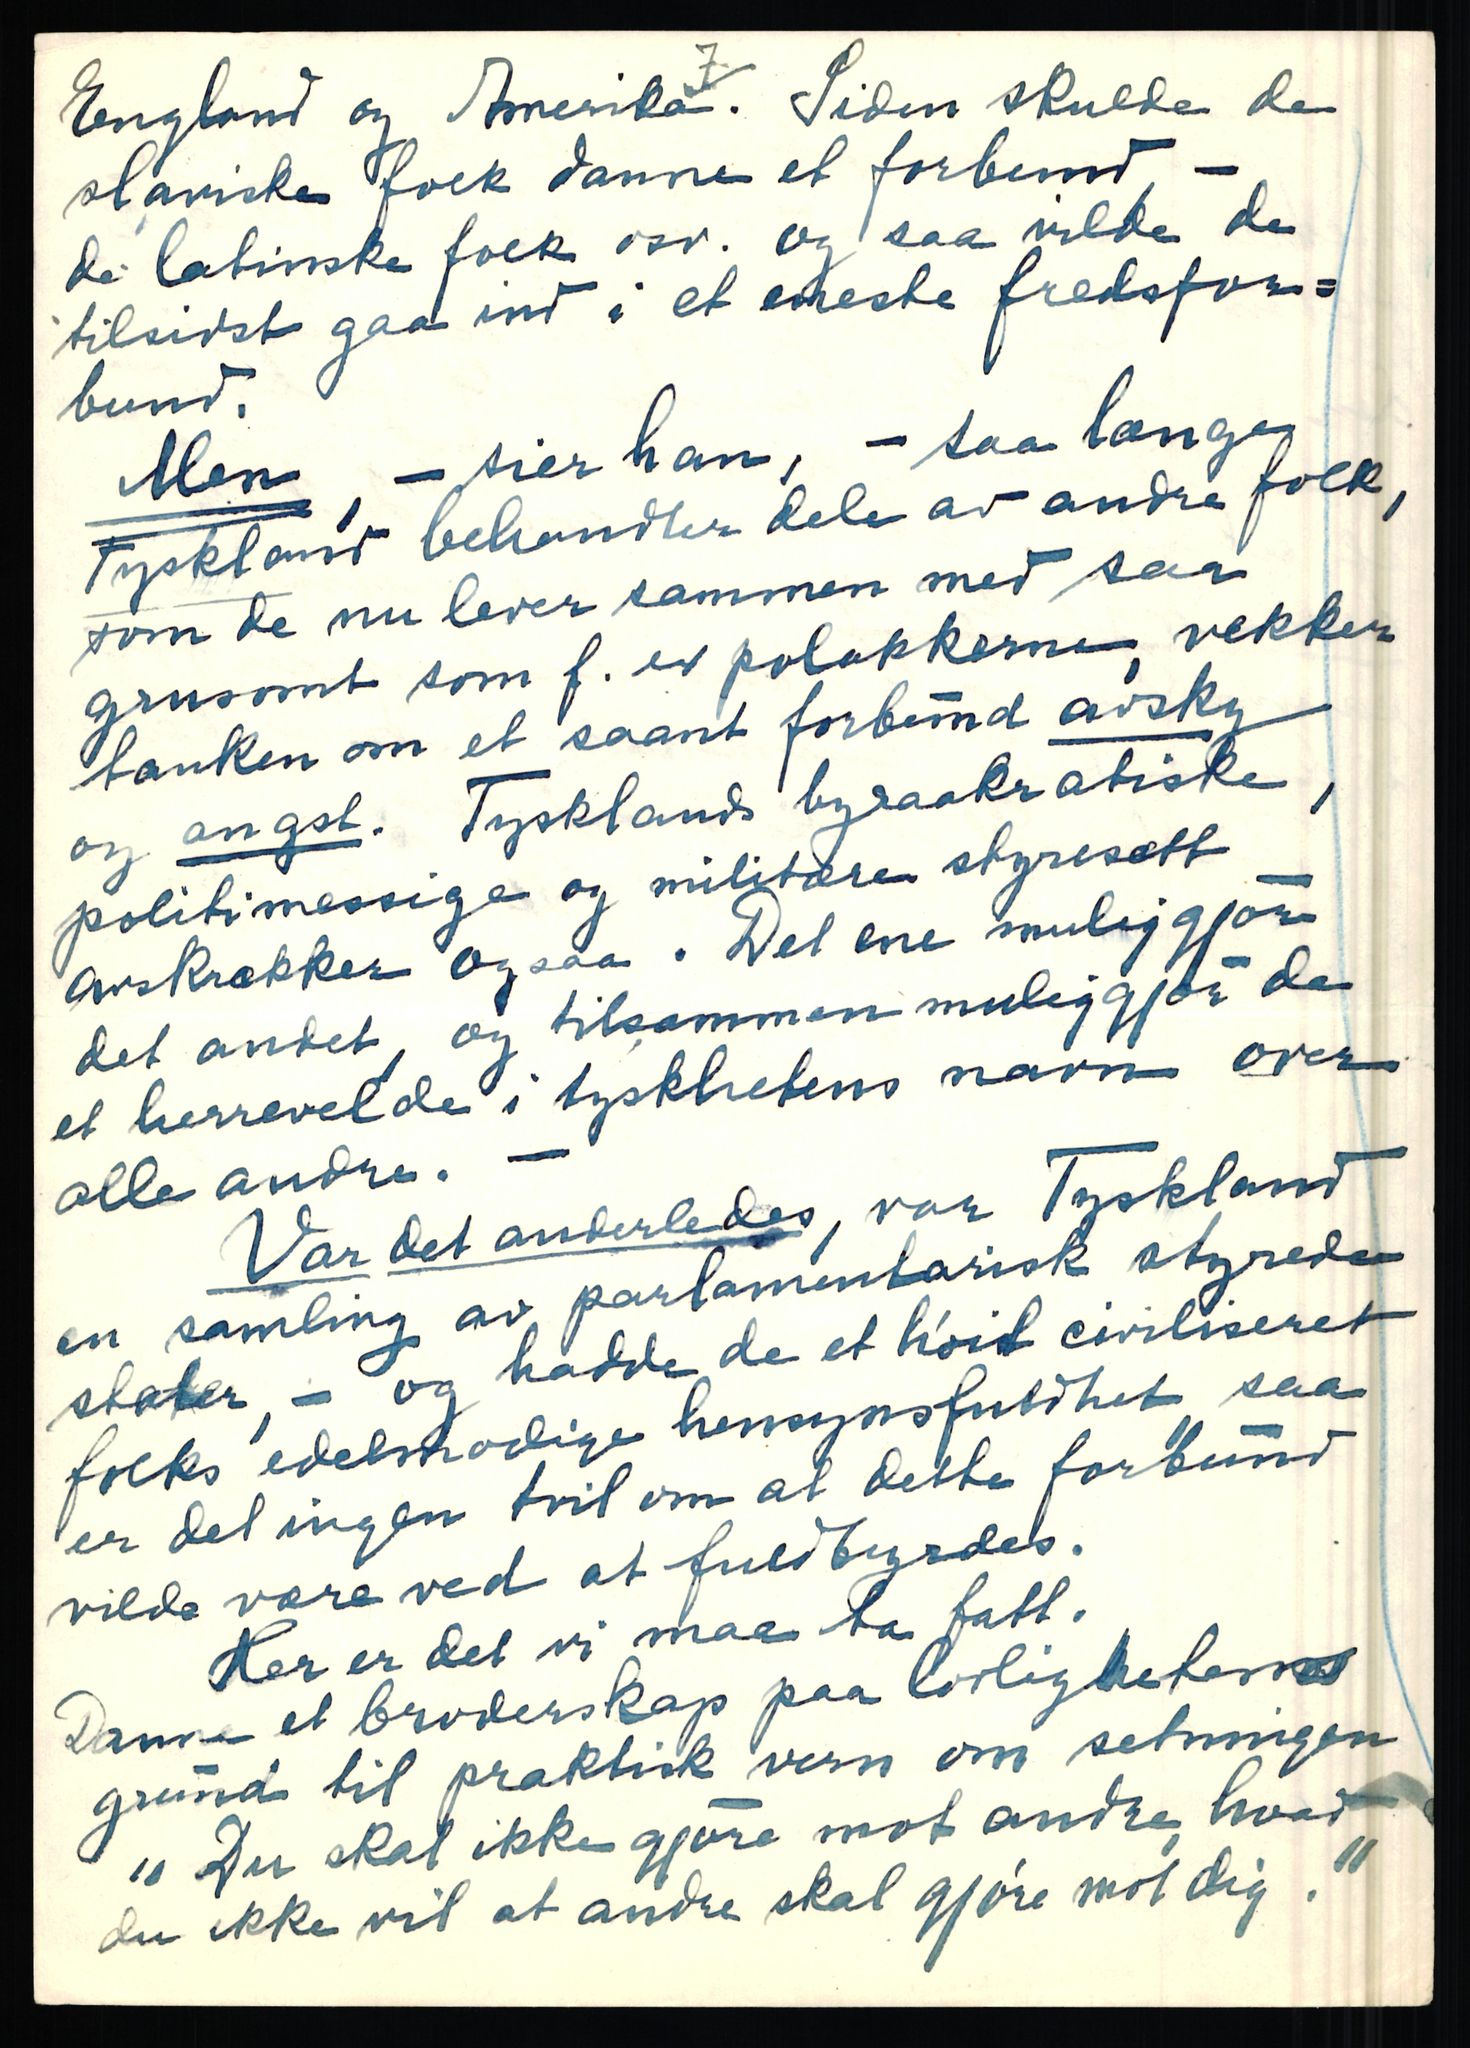 7.
England og Amerika. Siden skulde de
slaviske folk danne et forbund, –
de latinske folk osv. og saa vilde de
tilsidst gaa ind i et eneste fredsfor=
bund.
Men, – sier han, – saa længe
Tyskland behandler dele av andre folk,
som de nu lever sammen med saa
grusomt som f. ex polakkerne, vekker
tanken om et saant forbund avsky
og angst. Tysklands byraakratiske,
politimessige og militære styresett
avskrækker ogsaa. Det ene muliggjör
det andet, og tilsammen muliggjör de
et herrevelde i tyskhetens navn over
alle andre. –
Var det anderledes, var Tyskland
en samling av parlamentarisk styrede
stater, – og hadde de et höit civiliseret
folks edelmodige hensynsfuldhet, saa
er det ingen tvil om at dette forbund
vilde være ved at fuldbyrdes.
Her er det vi maa ta fatt.
Danne et broderskap paa lovlighetens
grund til praktisk vern om setningen
"Du skal ikke gjöre mot andre, hvad
du ikke vil at andre skal gjöre mot dig."